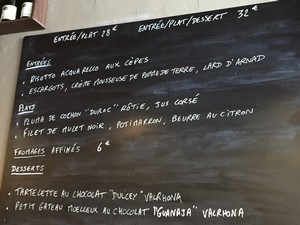 ENTRÉE/PLAT 28 € ENTRÉE/PLAT/DESSERT 32 €
ENTRÉES
• RISOTTO ACQUARELLO AUX CÈPES
• ESCARGOTS, CRÈME MOUSSEUSE DE POMME DE TERRE, LARD D'ARNAD
PLATS
• PLUMA DE COCHON "DUROC" RÔTIE, JUS CORSÉ
• FILET DE MULET NOIR, POTIMARRON, BEURRE AU CITRON
FROMAGES AFFINÉS 6€
DESSERTS
• TARTELETTE AU CHOCOLAT "DULCEY" VALRHONA
• PETIT GATEAU MOELLEUX AU CHOCOLAT "GUANAJA" VALRHONA